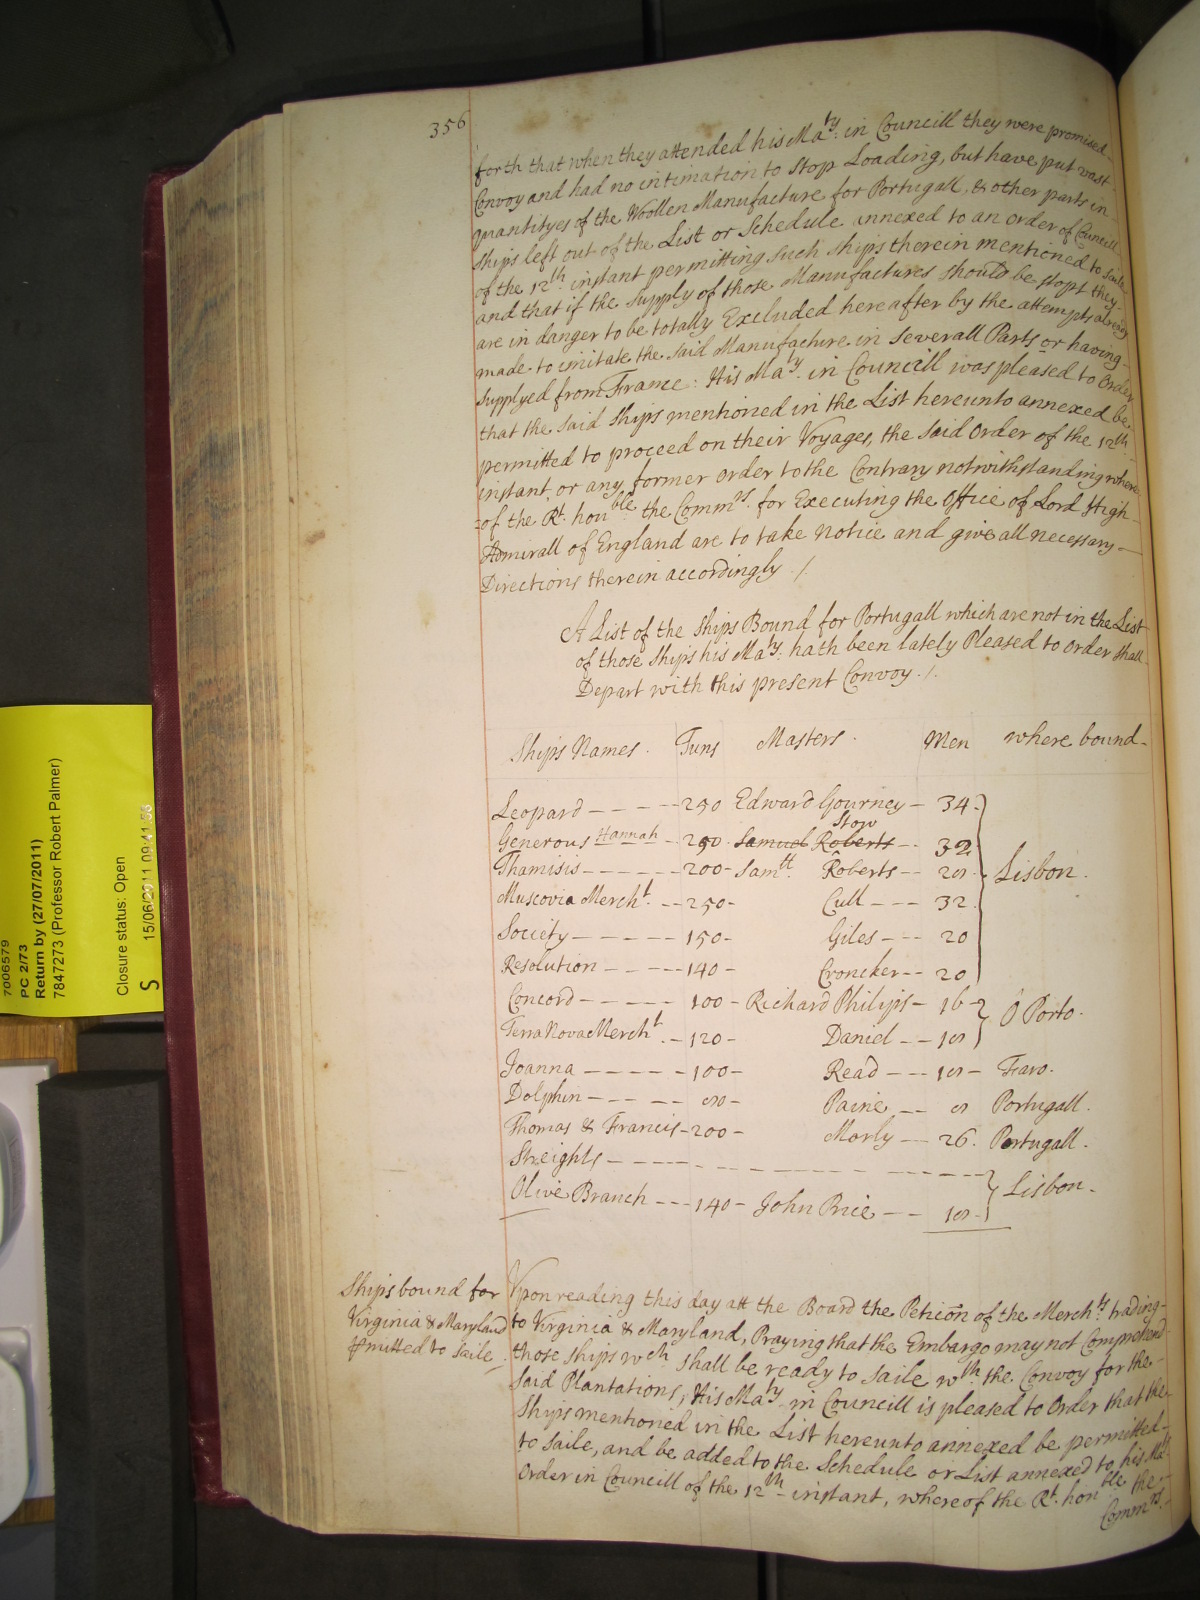 356
forth that when they attended his Ma:ty in Councill they were promised
Convoy and had no intimation to Stop Loading, but have put vast
quantityes of the Woollen Manufacture for Portugall, & other parts in
Ships left out of the List or Schedule annexed to an order of Councill
of the 12th instant permitting such ships therein mentioned to saile
and that if the supply of those Manufactures should be stopt they
are in danger to be totally Excluded hereafter by the attempts already
made to imitate the said Manufacture in severall Parts or having
supplyed from France: His Ma:ty in Councill was pleased to Order
that the said Ships mentioned in the List hereunto annexed be
permitted to proceed on their Voyages, the said Order of the 12th
instant or any former order to the Contrary notwithstanding where
=of the Rt. honble the Commrs. for Executing the Office of Lord High
Admirall of England are to take Notice and give all necessary
Directions therein accordingly /.
A List of the Ships Bound for Portugall which are not in the List
of those Ships his Ma:ty hath been lately Pleased to Order shall
Depart with this present Convoy /.
Ships Names. Tuns Masters. Men where bound
Leopard - - - - 250 Edward Gourney - 34
Generous Hannah - 250 Samuel Roberts Stow - - 32
Thamisis - - - - - 200 - Samll. Roberts - - 28 Lisbon.
Muscovia Mercht. - - 250 - Cull - - - 32
Society - - - - - 150 - Giles - - - 20
Resolution - - - - 140 - Croncker - - 20
Concord - - - - - 100 - Richard Philips - 16 O Porto.
Terra Nova Mercht. - 120 - Daniel - - 18
Joanna - - - - - 100 - Read - - - 18 - Faro.
Dolphin - - - - - 80 - Paine - - 8 Portugall.
Thomas & Francis - 200 - Morly - - 26. Portugall.
Streights - - - - - - - - - - - - - - -
Olive Branch - - - 140 - John Price - - 18 Lisbon.
Ships bound for
Virginia & Maryland
pmitted to Saile
Upon reading this day att the Board the Peticōn of the Merchts trading
to Virginia & Maryland, Praying that the Embargo may not Comprehend
those ships wch shall be ready to saile wth the Convoy for the
said Plantations, His Ma:ty in Councill is pleased to Order that the
Ships mentioned in the List hereunto annexed be permitted
to saile, and be added to the Schedule or List annexed to his Ma:ts
Order in Councill of the 12th instant, whereof the Rt. honble the
Commrs.
7006579
PC 2/73
Return by (27/07/2011)
7847273 (Professor Robert Palmer)
Closure status: Open
S 15/06/2011 09:41:56